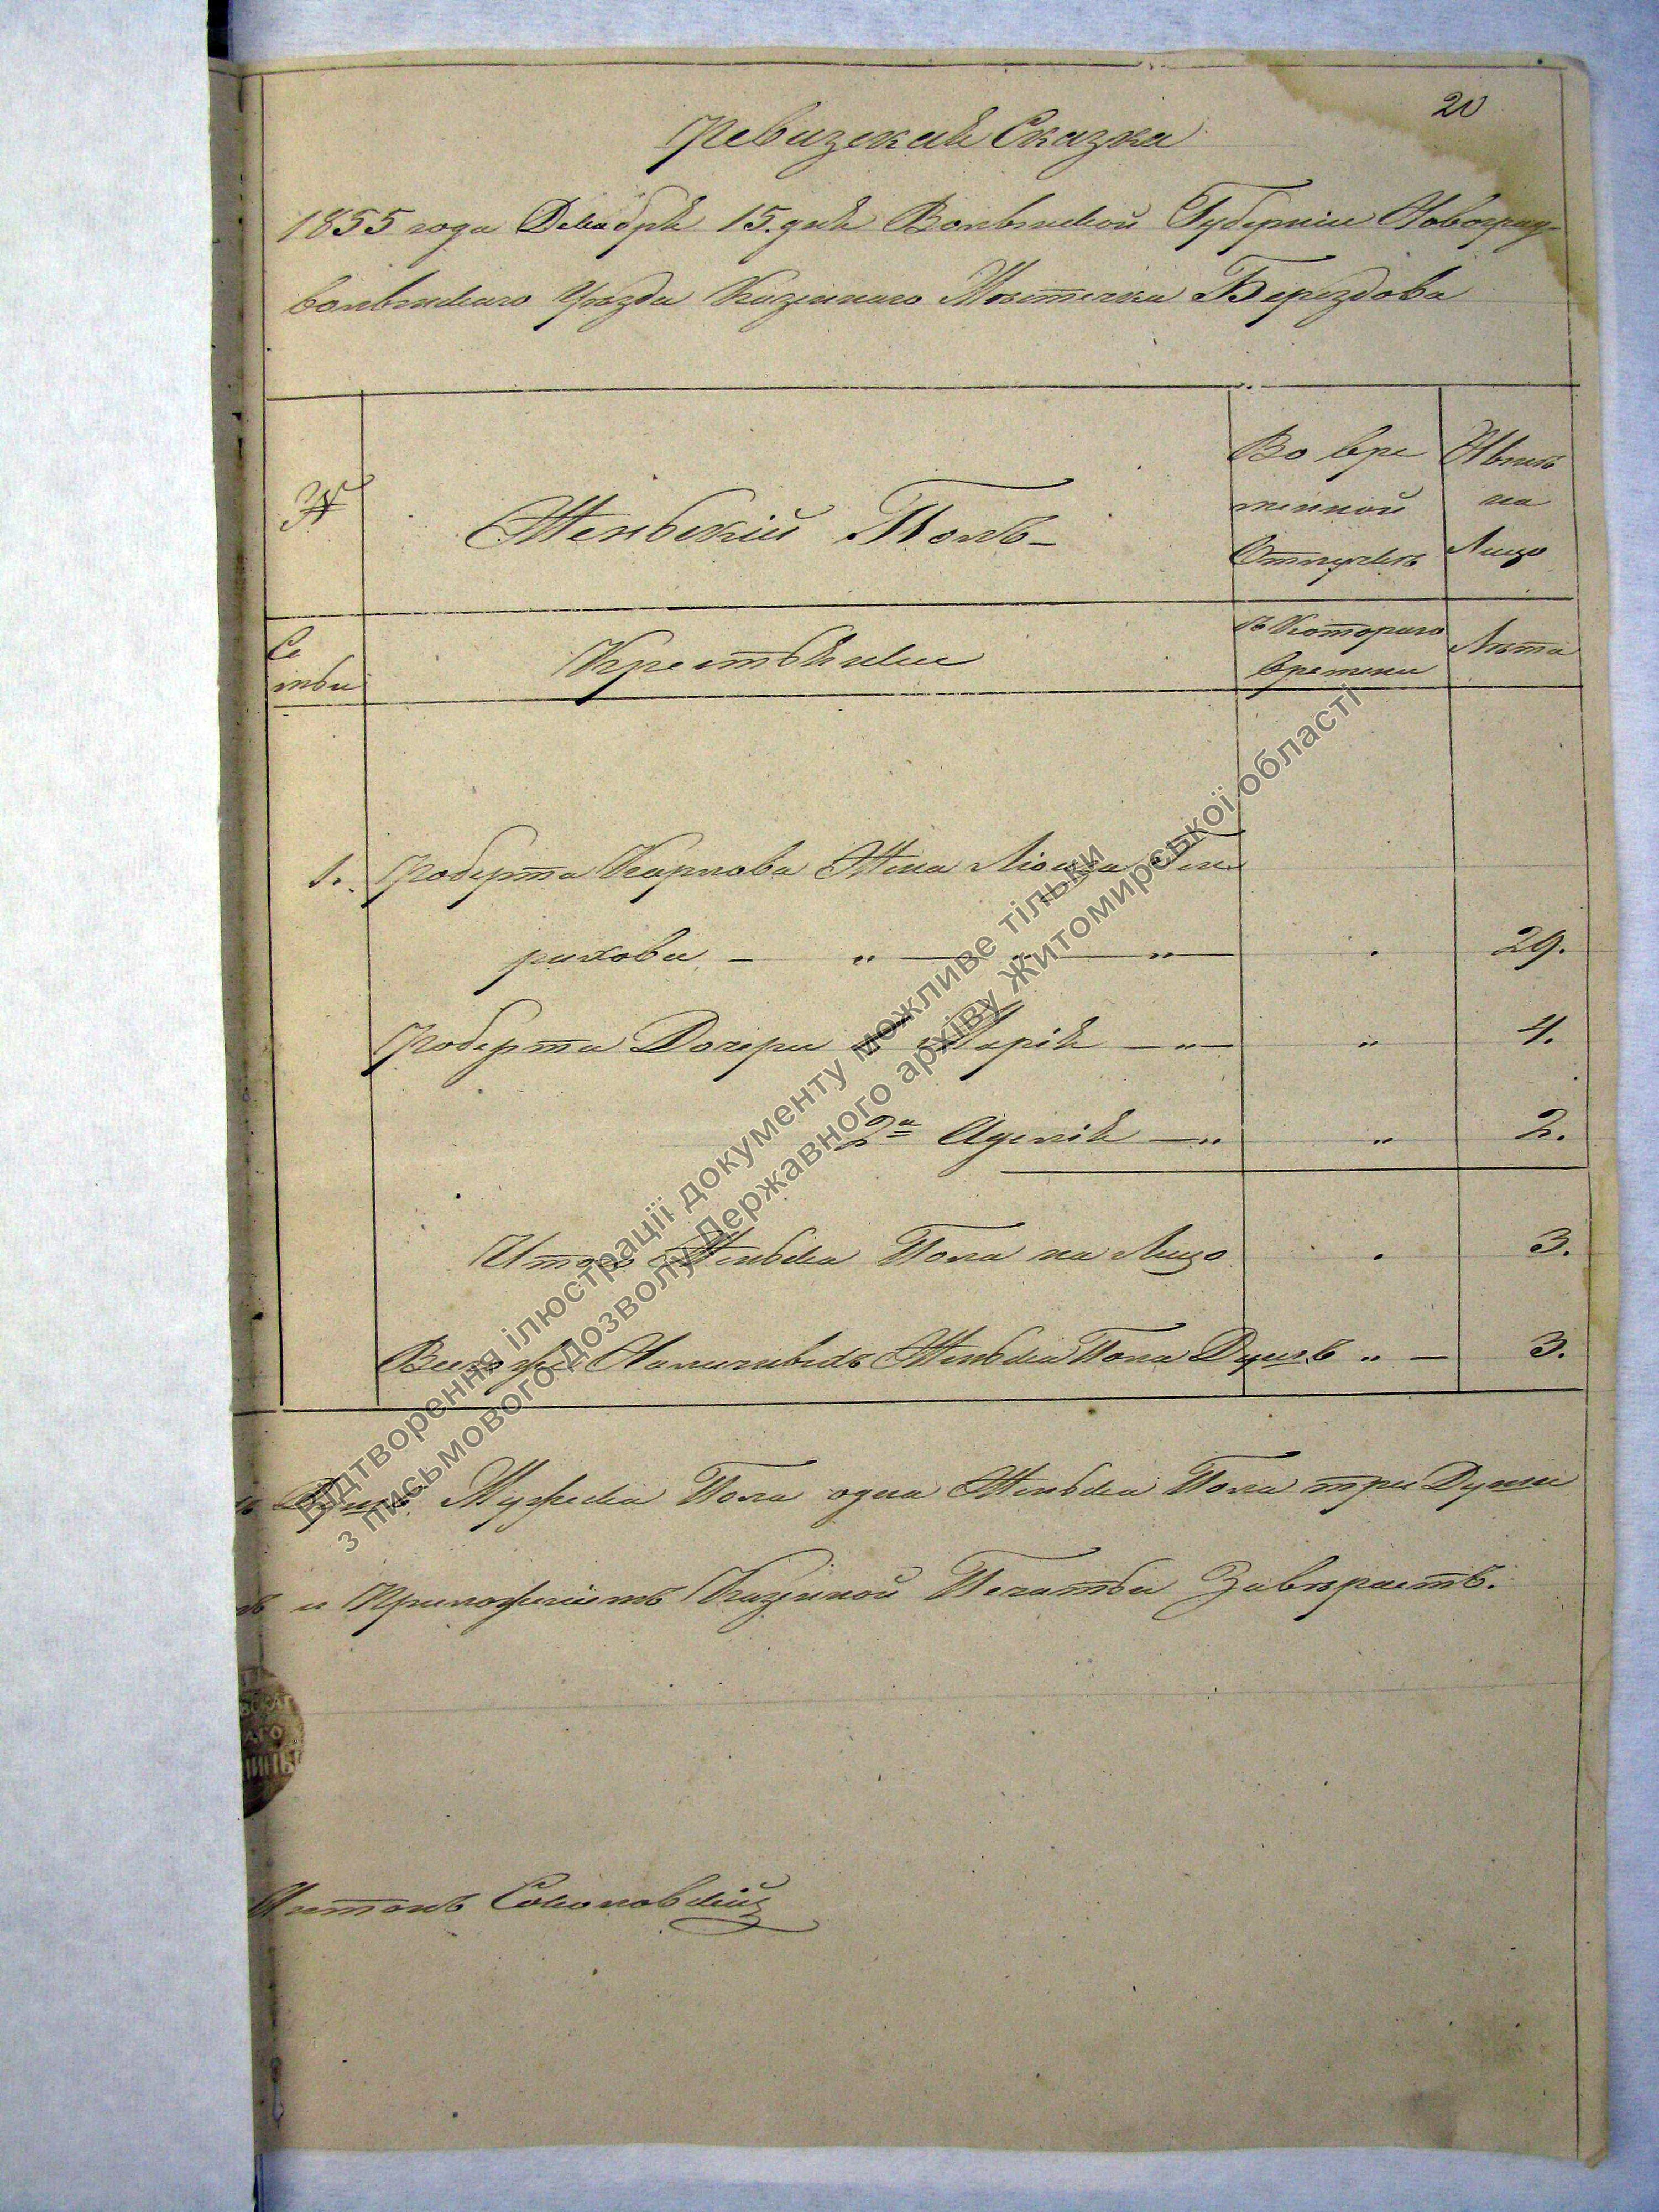 20
Ревизская Сказка
1855 года Декабря 15. дня Волынской Губерніи Новоград-
волынскаго Уѣзда Казеннаго Мѣстечка Берездова
№
Женьскій Полъ
Во вре
менной
Отлучкѣ
Нынѣ
на
Лицо
Се
мьи
Крестьянки
съ Котораго
времени
Лѣта
1. Роберта Карлова Жена Ген
рихова — " — " — 29.
Роберта Дочери 1 Марія — " — " 4.
2я — " " 2.
Итого Женьска Пола на Лицо 3.
Всего же Женьска Пола Душъ " — 3.
Душъ Мужеска Пола одна Женьска Пола три Души
и Приложеніемъ Казенной Печати Завѣряетъ.
Антонъ
Відтворення ілюстрації документу можливе тільки
з письмового дозволу Державного архіву Житомирської області